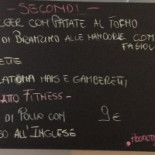 - SECONDI -
GER CON PATATE AL FORNO
DI BRANZINO ALLE MANDORLE CON
FAGIOL
ETTE
LATIONA MAIS E GAMBERETTI
ATTO FITNESS -
DI POLLO CON
SO ALL'INGLESE
9€